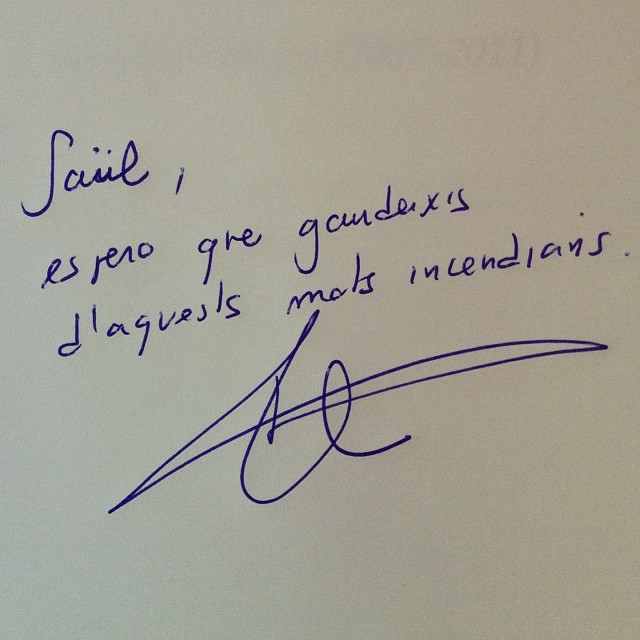 2007-2011)
Saül,
espero que gaudeixis
d'aquests mots incendiaris.